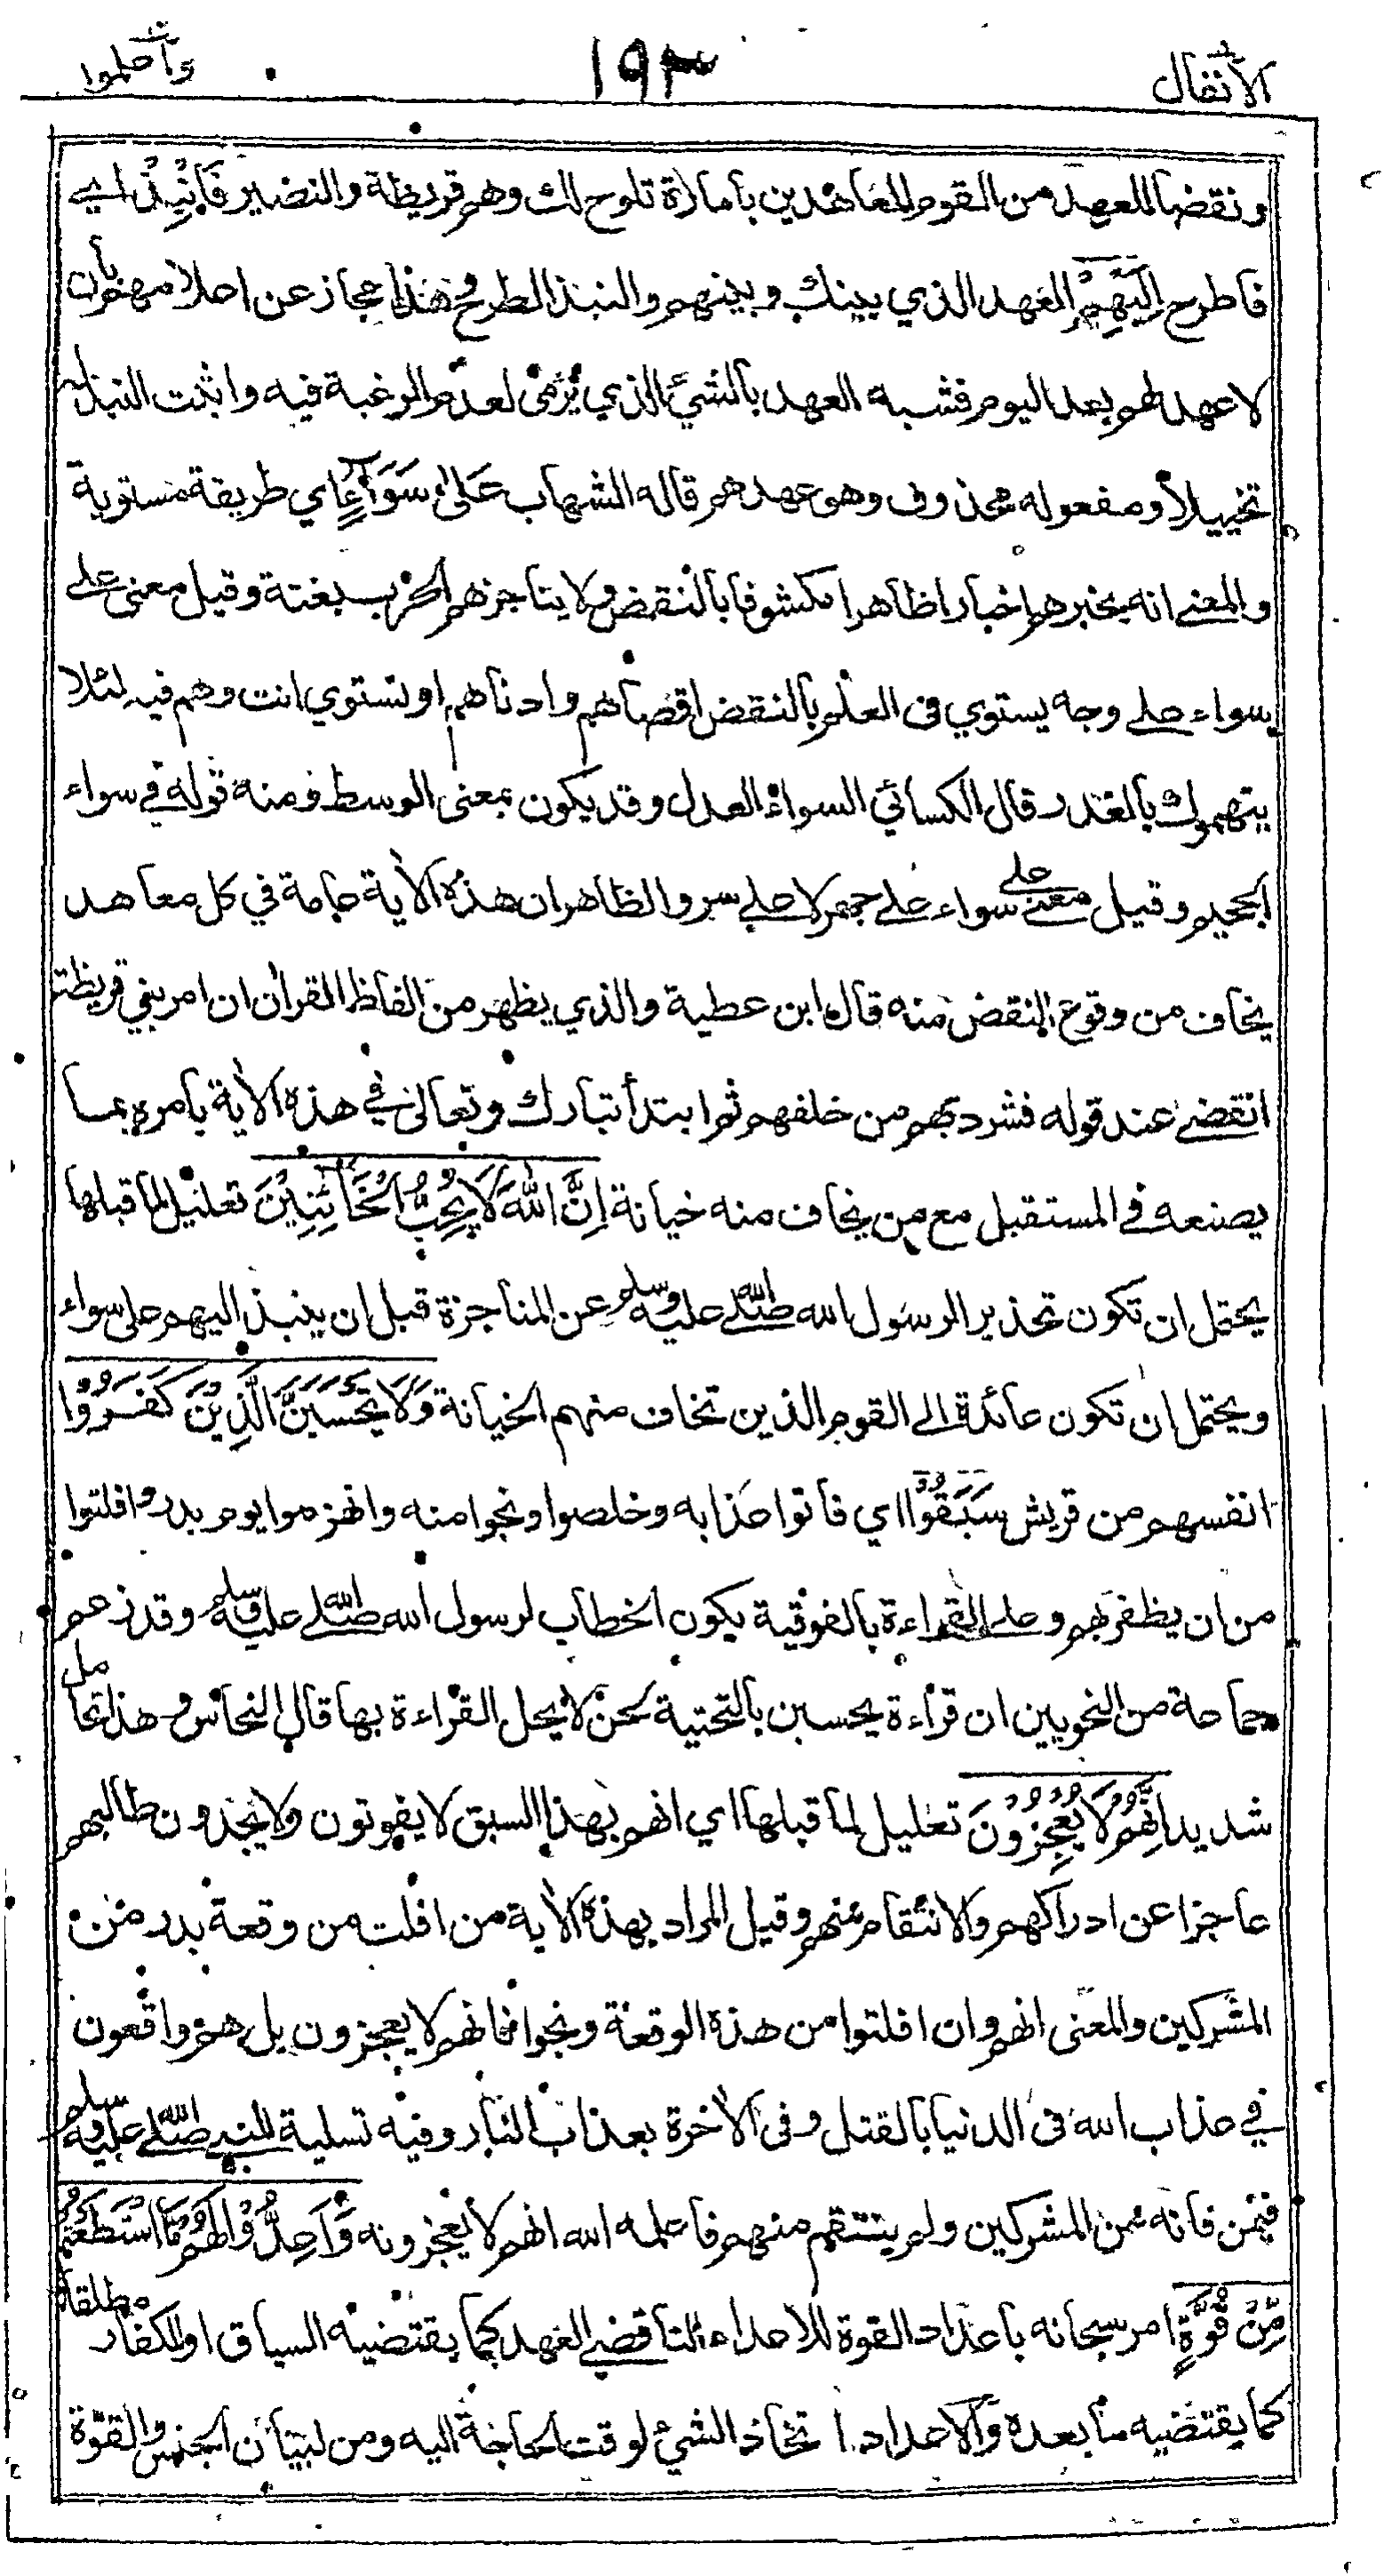 الأنفال ١٩٣ واعلموا
ونقضا للعهد من القوم المعاهدين بأمارة تلوح لك وهم قريظة والنضير فَانْبِذْ اي
فاطرح اِلَيْهِمْ العهد الذي بينك وبينهم والنبذ الطرح وهذا مجاز عن اعلامهم بأن
لا عهد لهم بعد اليوم فشبه العهد بالشيء الذي يُرمى لعدم الرغبة فيه واثبت النبذ له
تخييلا ومفعوله محذوف وهو عهدهم قاله الشهاب عَلٰى سَوَآءٍ اي طريقة مستوية
والمعنى انه يخبرهم اخبارا ظاهرا مكشوفا بالنقض ولا يناجزهم الحرب بغتة وقيل معنى على
سواء على وجه يستوي في العلم بالنقض اقصاهم وادناهم او تستوي انت وهم فيه لئلا
يتهموك بالغدر قال الكسائي السواء العدل وقد يكون بمعنى الوسط ومنه قوله في سواء
الجحيم وقيل معنى على سواء على جهر لا على سر والظاهر ان هذه الآية عامة في كل معاهد
يخاف من وقوع النقض منه قال ابن عطية والذي يظهر من الفاظ القرآن ان امر بني قريظة
انقضى عند قوله فشرد بهم من خلفهم ثم ابتدأ تبارك وتعالى في هذه الآية بأمره بما
يصنعه في المستقبل مع من يخاف منه خيانة اِنَّ اللّٰهَ لَا يُحِبُّ الْخَآئِنِيْنَ تعليل لما قبلها
يحتمل ان تكون تحذير الرسول الله صلى الله عليه وسلم عن المناجزة قبل ان ينبذ اليهم على سواء
ويحتمل ان تكون عائدة الى القوم الذين تخاف منهم الخيانة وَلَا يَحْسَبَنَّ الَّذِيْنَ كَفَرُوْا
انفسهم من قريش سَبَقُوْا اي فاتوا عذابه وخلصوا ونجوا منه وانهزموا يوم بدر وافلتوا
من ان يظفر بهم وعلى القراءة بالفوقية يكون الخطاب لرسول الله صلى الله عليه وسلم وقد زعم
جماعة من النحويين ان قراءة يحسبن بالتحتية لحن لا يحل القراءة بها قال النحاس وهذا تحامل
شديد اِنَّهُمْ لَا يُعْجِزُوْنَ تعليل لما قبلها اي انهم بهذا السبق لا يفوتون ولا يجدون طالبهم
عاجزا عن ادراكهم والانتقام منهم وقيل المراد بهذه الآية من افلت من وقعة بدر من
المشركين والمعنى انهم وان افلتوا من هذه الوقعة ونجوا فانهم لا يعجزون بل هم واقعون
في عذاب الله في الدنيا بالقتل وفي الآخرة بعذاب النار وفيه تسلية للنبي صلى الله عليه وسلم
فيمن فاته من المشركين ولم ينتقم منهم فاعلمه الله انهم لا يعجزونه وَاَعِدُّوْا لَهُمْ مَّا اسْتَطَعْتُمْ
مِّنْ قُوَّةٍ امر سبحانه باعداد القوة للاعداء الناقضي العهد كما يقتضيه السياق او الكفار مطلقا
كما يقتضيه ما بعده والاعداد اتخاذ الشيء لوقت الحاجة اليه ومن لبيان الجنس والقوة